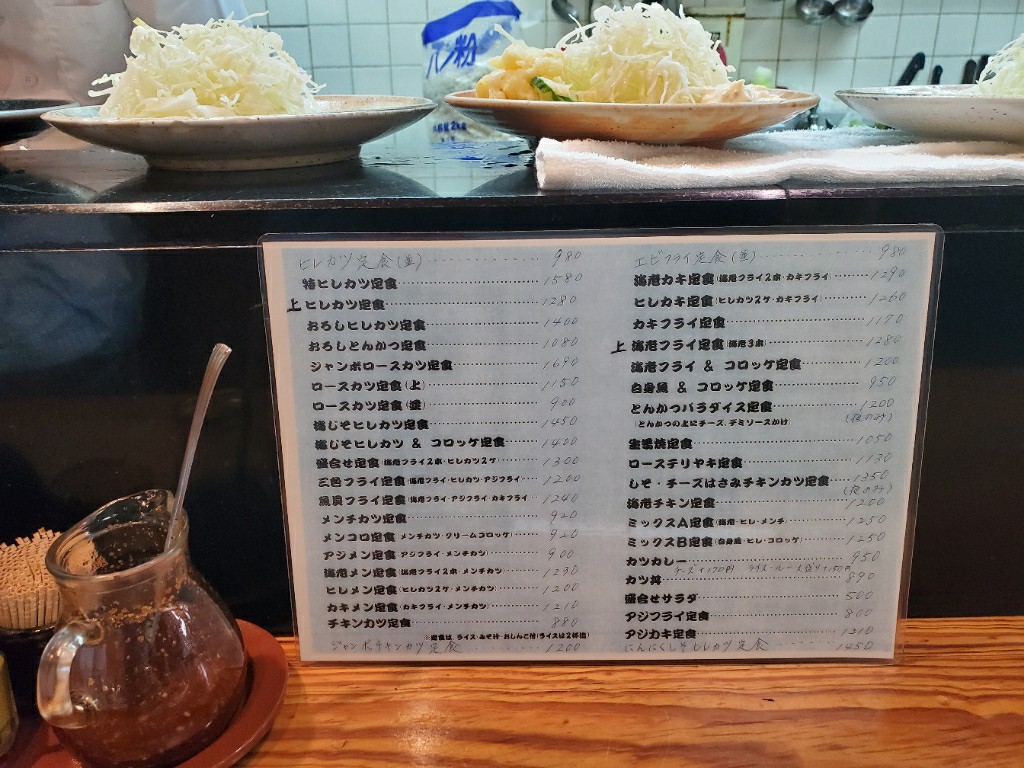 パン粉
ヒレカツ定食(並) 980
特ヒレカツ定食 1580
上ヒレカツ定食 1280
おろしヒレカツ定食 1400
おろしとんかつ定食 1080
ジャンボロースカツ定食 1690
ロースカツ定食(上) 1150
ロースカツ定食(並) 900
梅じそヒレカツ定食 1450
梅じそヒレカツ & コロッケ定食 1400
盛合せ定食(海老フライ2本・ヒレカツ2ケ) 1300
三色フライ定食(海老フライ・ヒレカツ・アジフライ) 1200
魚貝フライ定食(海老フライ・アジフライ・カキフライ) 1240
メンチカツ定食 920
メンコロ定食(メンチカツ・クリームコロッケ) 920
アジメン定食(アジフライ・メンチカツ) 900
海老メン定食(海老フライ2本・メンチカツ) 1230
ヒレメン定食(ヒレカツ2ケ・メンチカツ) 1200
カキメン定食(カキフライ・メンチカツ) 1210
チキンカツ定食 880
※定食は ライス・みそ汁・おしんこ付(ライスは2杯迄)
ジャンボチキンカツ定食 1200
エビフライ定食(並) 980
海老カキ定食(海老フライ2本・カキフライ) 1290
ヒレカキ定食(ヒレカツ2ケ・カキフライ) 1260
カキフライ定食 1170
上海老フライ定食(海老3本) 1280
海老フライ & コロッケ定食 1200
白身魚 & コロッケ定食 950
とんかつパラダイス定食 1200
(とんかつの上にチーズ、デミソースかけ) (夜のみ)
生姜焼定食 1050
ローステリヤキ定食 1130
しそ・チーズはさみチキンカツ定食 1350
(夜のみ)
海老チキン定食 1200
ミックスA定食(海老・ヒレ・メンチ) 1250
ミックスB定食(白身魚・ヒレ・コロッケ) 1250
カツカレー 950
カツ丼 890
盛合せサラダ 500
アジフライ定食 800
アジカキ定食 1210
にんにくし ヒレカツ定食 1450